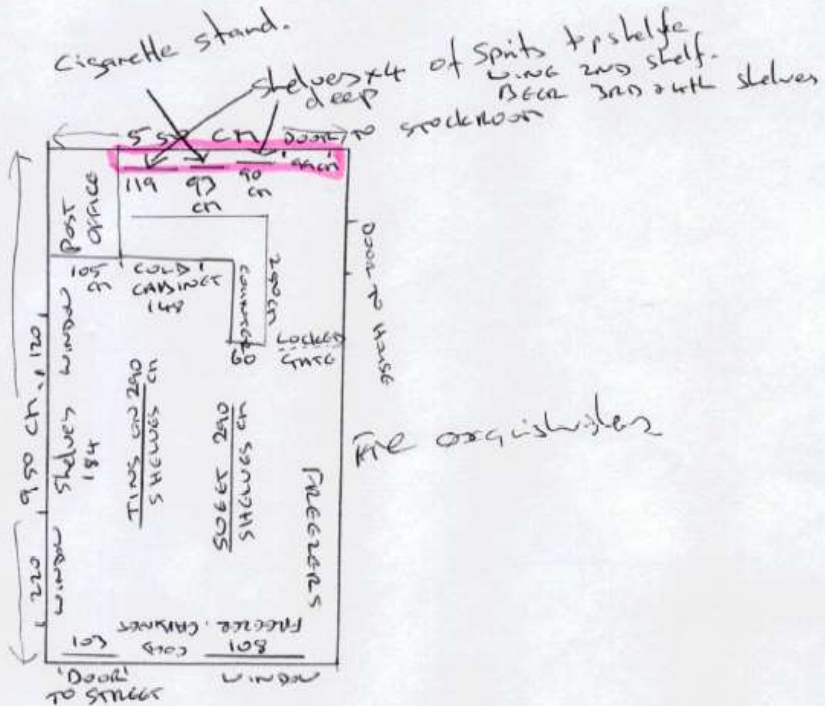 Cigarette stand.
shelves x4 of Spirits top shelf
deep
WINE 2ND SHELF.
BEER 3RD & 4th shelves
550 cm
DOOR TO STOCKROOM
119
93
cm
90
cm
99cm
POST
OFFICE
105
cm
COLD
CABINET
148
COUNTER
200cm
60
LOCKED
GATE
DOOR TO HOUSE
950 cm
120
WINDOW
Shelves
184
TINS ON 290
SHELVES cm
SWEET 290
SHELVES cm
FREEZERS
Fire exquishishers
220
WINDOW
FREEZER. CABINET
COLD
103
108
'DOOR'
TO STREET
WINDOW